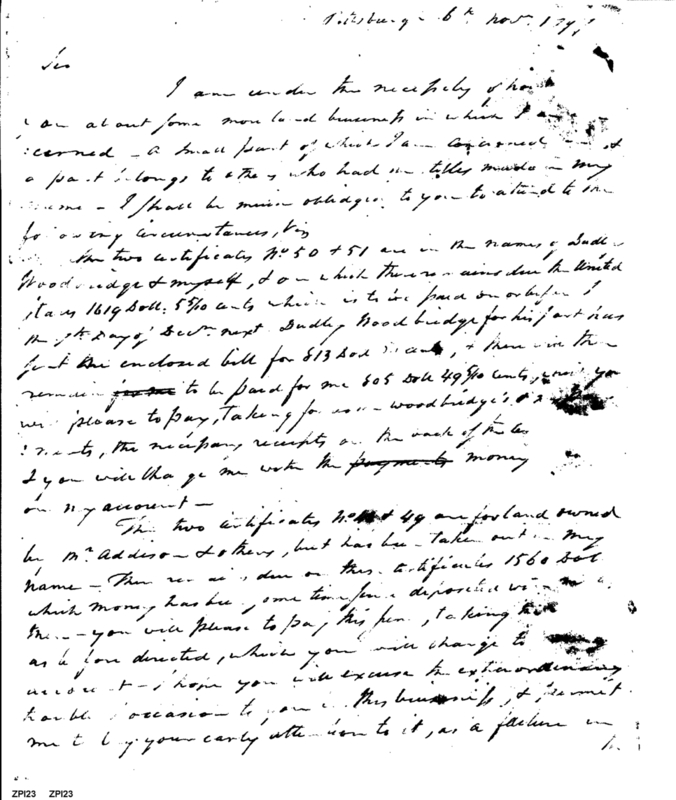 Pittsburgh 6th Novr 179
Sir
I am under the necessity of
you about some more land business in which I am
cerned - a small part of which I am concerned
a part belongs to others who had the titles made in my
name - I shall be much obliged to you to attend to the
following circumstances, Viz
The two certificates No 50 & 51 are in the names of Dudley
Woodbridge & myself, & on which there remains due the United
States 1619 Doll: 5 5/10 cents which is to be paid on or before
the 7th Day of Decr next. Dudley Woodbridge for his part has
sent the enclosed bill for 813 Dol cents, & there will then
remain to be paid for me 805 Doll 49 5/10 cents, which you
will please to pay, taking for Woodbridge's &
the necessary receipts on the back of the
& you will charge me with the payments money
on my account -
The two certificates No & 49 are for land owned
by Mr Addison & others, but has been taken out in my
name - There remains due on this certificates 1560 Dol
which money has been some time since deposited with me
then - you will please to pay this sum, taking
as before directed, which you will change to
account - I hope you will excuse the extraordinary
trouble I occasion to you in this business, & permit
me to beg your early attention to it, as a failure in
ZPI23 ZPI23